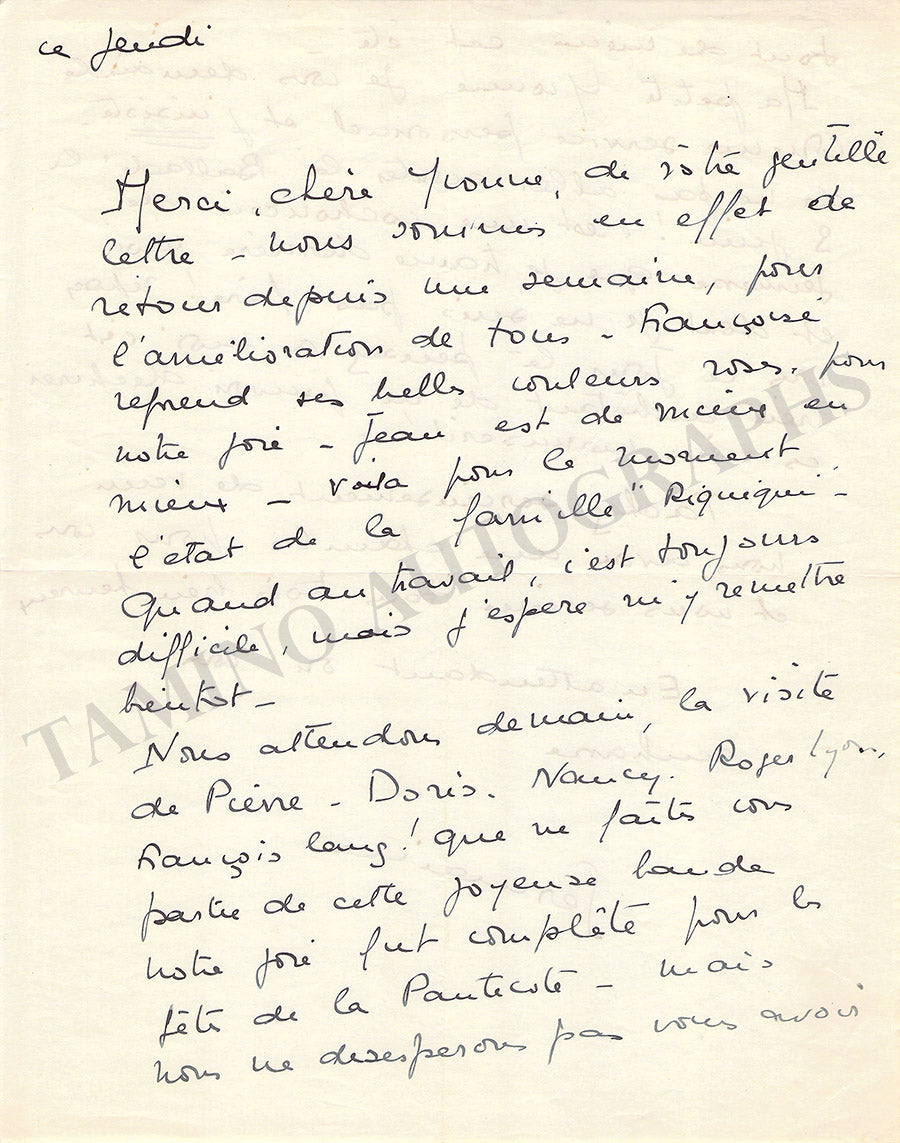 ce Jeudi
Merci, chère Yvonne, de vôtre gentille
lettre - nous sommes en effet de
retour depuis une semaine, pour
l'amélioration de tous - Françoise
reprend ses belles couleurs roses. pour
notre joie - Jean est de mieux en
mieux - voila pour le moment
l'état de la famille "Riquiqui -
Quand au travail, c'est toujours
difficile, mais j'espère m'y remettre
bientot -
Nous attendons demain, la visite
de Pierre - Doris. Nancy. Roger Lyon,
François lang! que ne faîtes vous
partie de cette joyeuse bande
notre joie fut complète pour la
fête de la Pantecote - mais
nous ne desesperons pas vous avoir
TAMINO AUTOGRAPHS